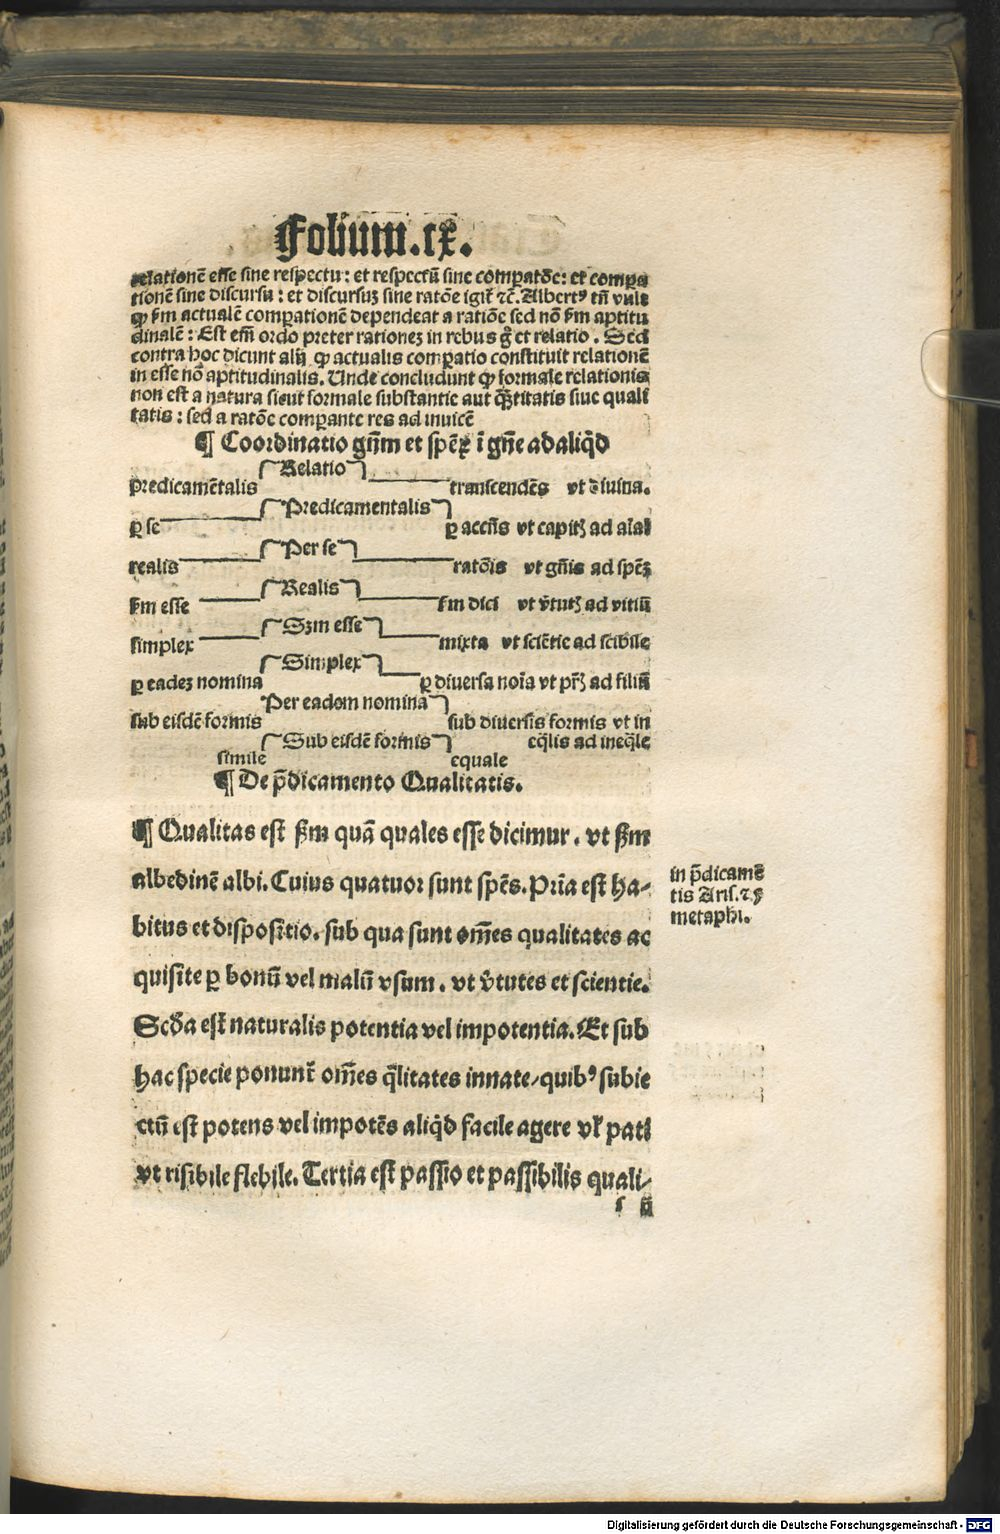 Folium.cx.
relationē esse sine respectu: et respectū sine cōꝑatōe: et compa
tionē sine discursu: et discursuꝫ sine ratōe igiť ⁊č. Albertꝰ tn̄ vult
ꝙ ẜm actualē comꝑationē dependeat a ratiōe sed nō ẜm aptitu
dinalē: Est em̄ ordo preter rationeꝫ in rebus g̊ et relatio. Sed
contra hoc dicunt alij ꝙ actualis comꝑatio constituit relationē
in esse nō aptitudinalis. Unde concludunt ꝙ formale relationis
non est a natura sicut formale substantie aut q̄titatis siue quali
tatis: sed a ratōe comꝑante res ad inuicē
¶ Coordinatio gn̄m et spēꝝ ī gn̄e ad aliqd̄
Relatio
predicamētalis transcendēs vt diuina.
Predicamentalis
ꝑ se ꝑ accn̄s vt capitꝫ ad aīal
Per se
realis ratōis vt gn̄is ad spēꝫ
Realis
ẜm esse ẜm dici vt v̄tutꝫ ad vitiū
Sꝫm esse
simplex mixta vt sciētie ad scibile
Simplex
ꝑ eadeꝫ nomina ꝑ diuersa noīa vt pr̄is ad filiū
Per eadem nomina
sub eisdē formis sub diuersis formis vt in
Sub eisdē formis eq̄lis ad ineq̄le
simile equale
¶ De p̄dicamento Qualitatis.
¶ Qualitas est ẜm quā quales esse dicimur. vt ẜm
albedinē albi. Cuius quatuor sunt spēs. Prīa est ha-
bitus et dispositio. sub qua sunt om̄es qualitates ac
quisite ꝑ bonū vel malū vsum. vt v̄tutes et scientie.
Scd̄a est naturalis potentia vel impotentia. Et sub
hac specie ponunť om̄es q̄litates innate/ quibꝰ subie
ctū est potens vel impotēs aliqd̄ facile agere vł pati
vt risibile flebile. Tertia est passio et passibilis quali/
in p̄dicamē
tis Aris. ⁊ 5
metaphi.
s ij
Digitalisierung gefördert durch die Deutsche Forschungsgemeinschaft - DFG